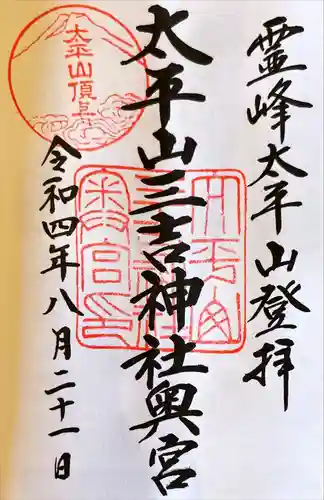 霊峰太平山登拝
太平山三吉神社奥宮
太平山頂上
令和四年八月二十一日